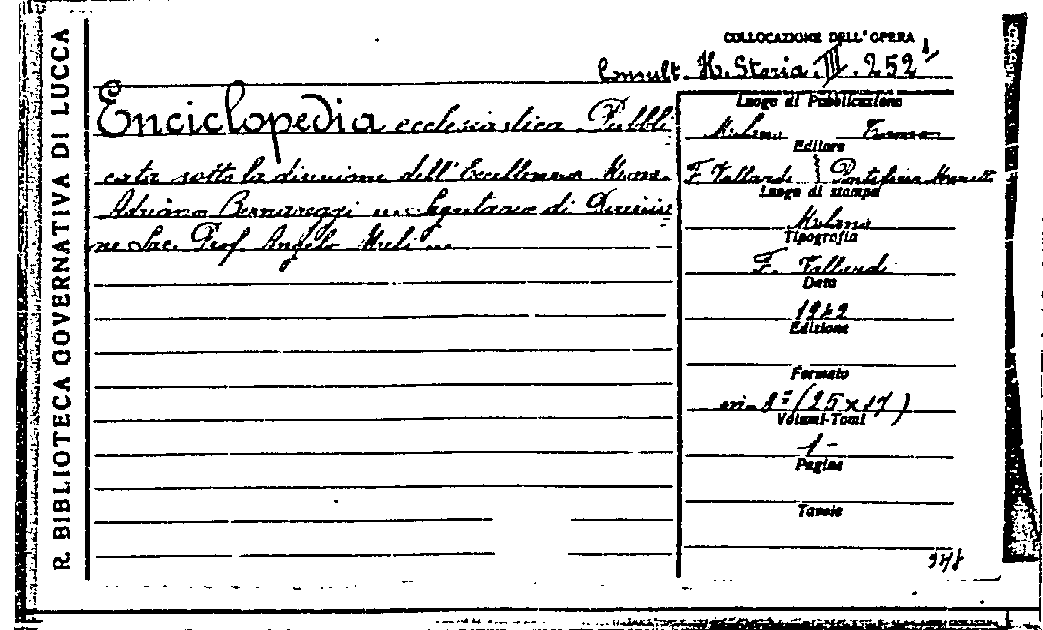 R. BIBLIOTECA GOVERNATIVA DI LUCCA
COLLOCAZIONE DELL'OPERA
Consult. H. Storia. III. 252
Enciclopedia ecclesiastica Pubbli
cata sotto la direzione dell'Eccellenza Mons.
Adriano Bernareggi Segretario di Direzio
ne Sac. Prof. Angelo Meli
Luogo di Pubblicazione
Milano Torino
Editore
F. Vallardi Pontificia Marietti
Luogo di stampa
Milano
Tipografia
F. Vallardi
Data
1942
Edizione
Formato
in-8° (25 x 17)
Volumi-Tomi
1-
Pagine
Tavole